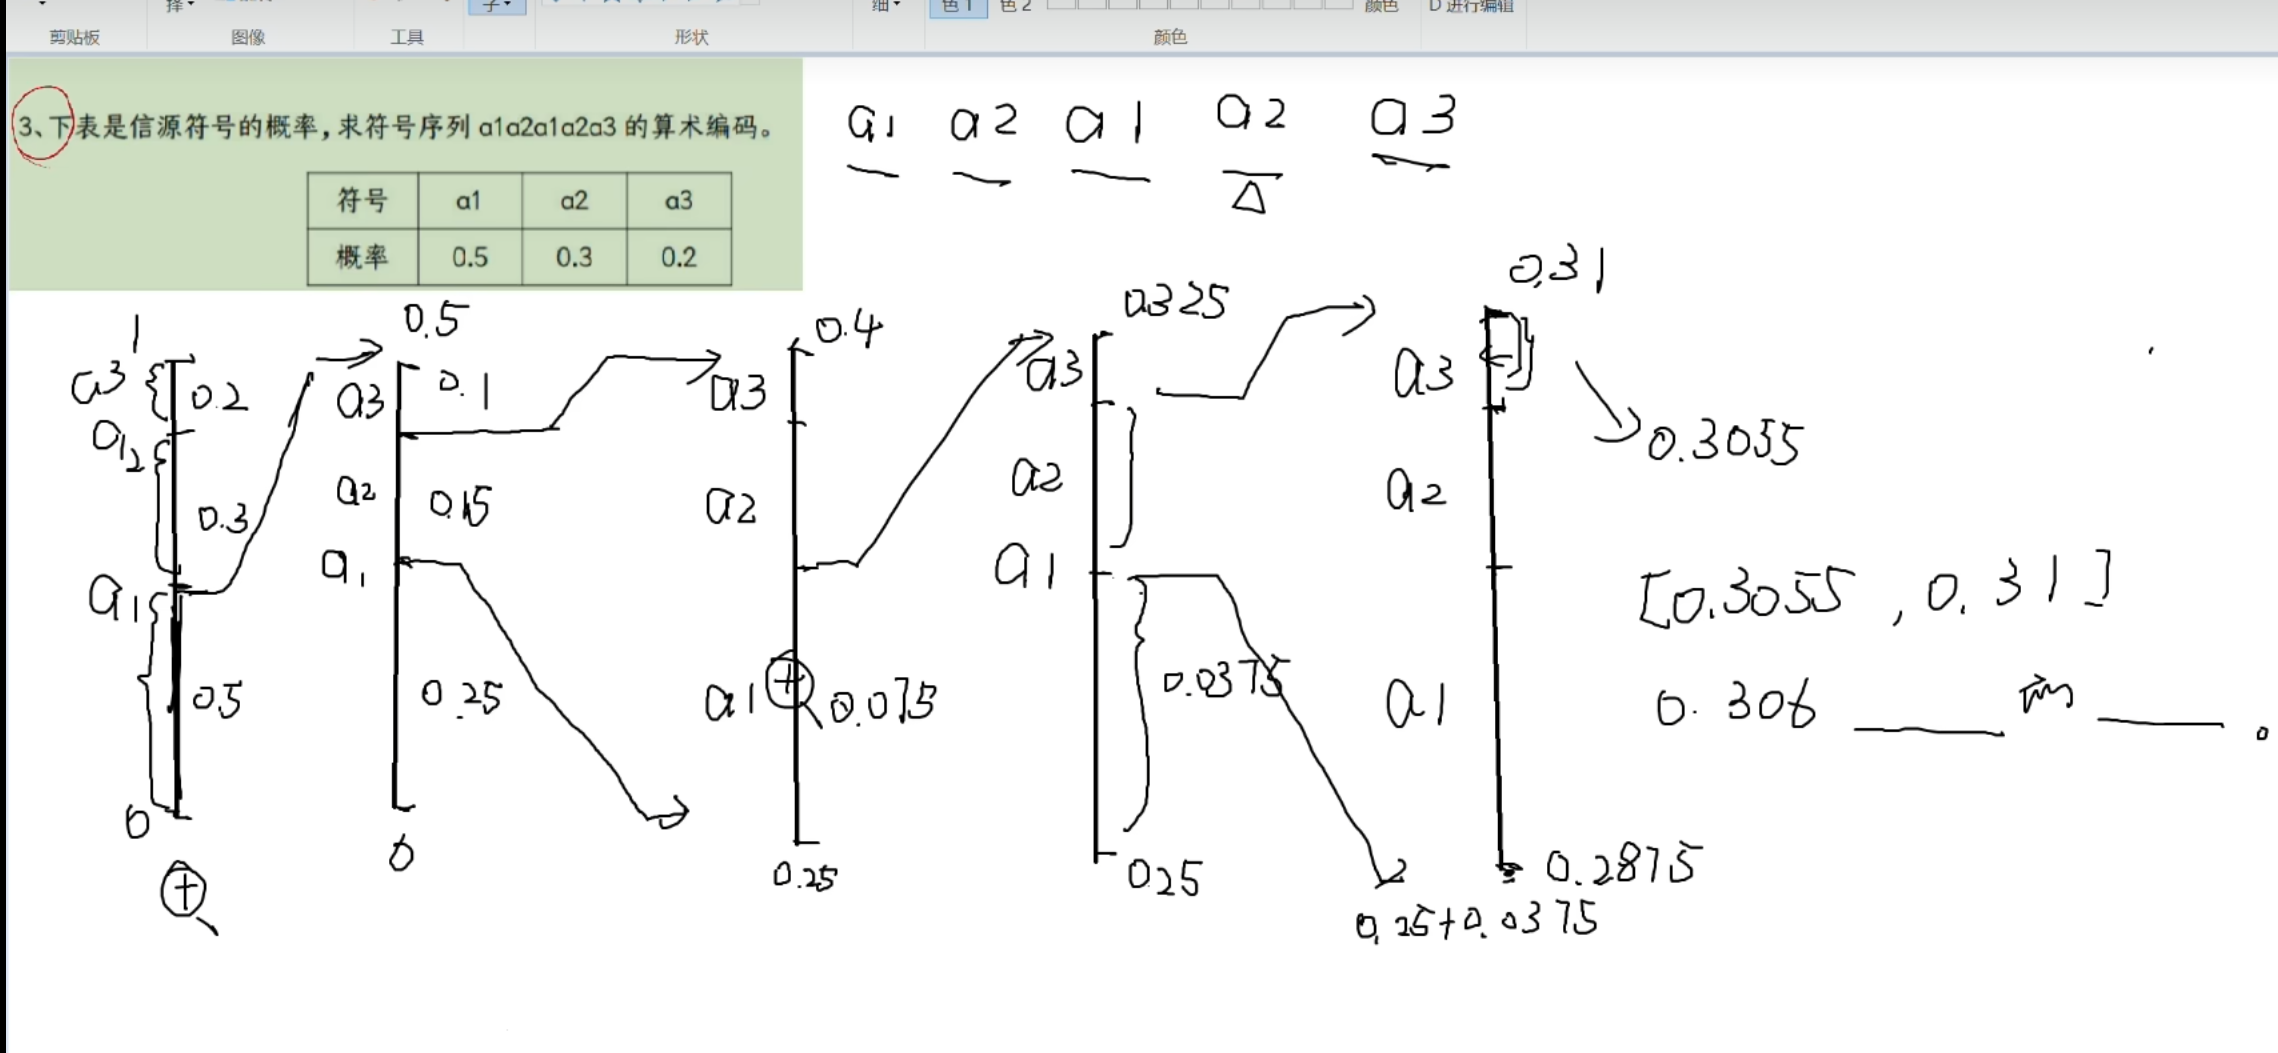 择
子
细
色1
色2
颜色
D 进行编辑
剪贴板
图像
工具
形状
颜色
3、下表是信源符号的概率，求符号序列 a1a2a1a2a3 的算术编码。
符号 a1 a2 a3
概率 0.5 0.3 0.2
a1 a2 a1 a2 a3
1
a3
0.2
a2
0.3
a1
0.5
0
0.5
a3
0.1
a2
0.15
a1
0.25
0
0.4
a3
a2
a1
0.075
0.25
0.325
a3
a2
a1
0.0375
0.25
0.31
a3
0.3055
a2
a1
0.2875
0.25+0.0375
[0.3055 , 0.31]
0.306